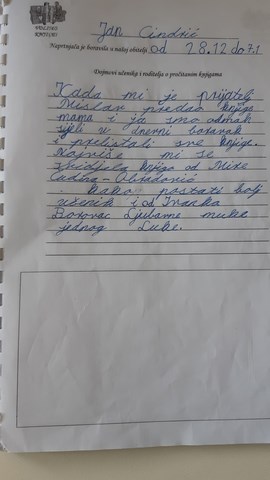 Jan Cindrić
Naprtnjača je boravila u našoj obitelji od 28.12 do 7.1
Dojmovi učenika i roditelja o pročitanim knjigama
Kada mi je prijatelj
Mislav predao knjige
mama i ja smo odmah
sjeli u dnevni boravak
i prelistali sve knjige.
Najviše mi se
svidjela knjiga od Mire
Čudina-Obradović
. Kako postati bolj
učenik i od Ivanka
Borovac Ljubavne muke
jednog Luke.